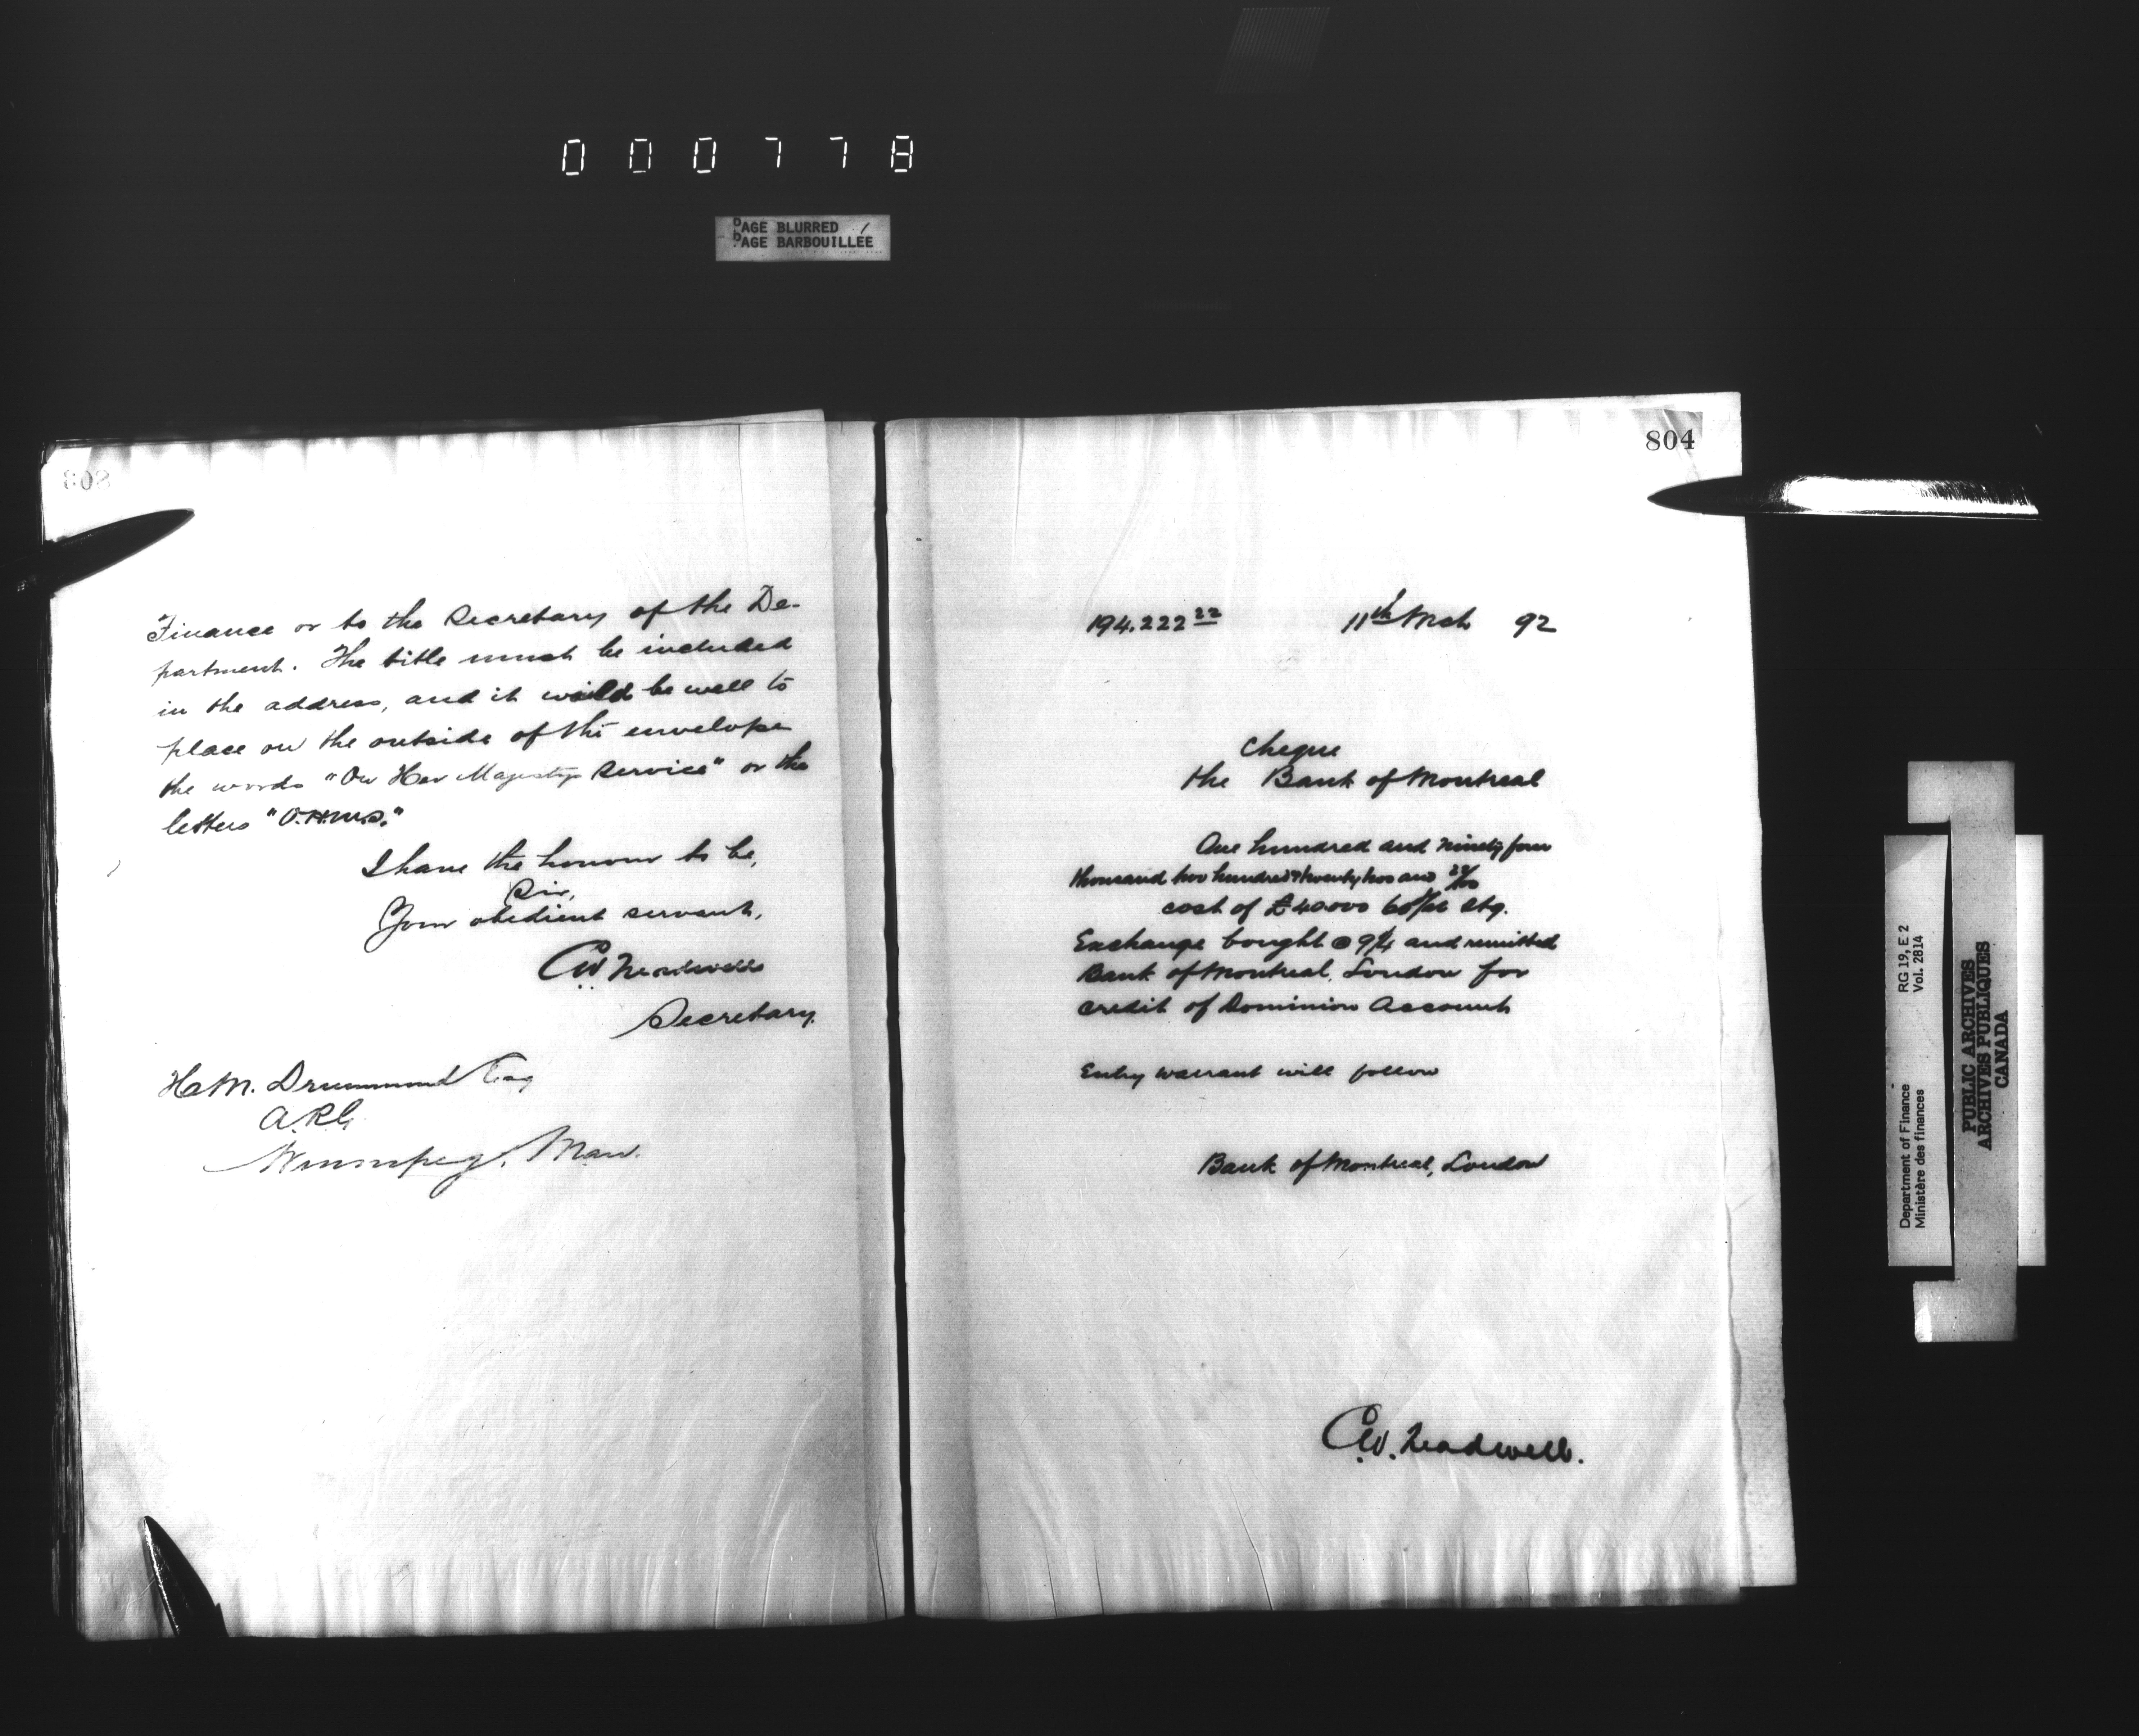 000778
PAGE BLURRED
PAGE BARBOUILLÉE
803
Finance or to the Secretary of the De-
partment. The title must be included
in the address, and it would be well to
place on the outside of the envelope
the words "On Her Majestys Service" or the
letters "O.H.M.S."
I have the honour to be,
Sir,
Your obedient servant,
Secretary.
H.M. Drummond Esq
A.R.G.
Winnipeg, Man.
804
194.222 22 11th Mch 92
Cheque
the Bank of Montreal
One hundred and ninety four
thousand two hundred & twenty two and 22/100
cost of £40000 60 d/s Stg.
Exchange bought @ 9¼ and remitted
Bank of Montreal, London for
credit of Dominion Account
Entry warrant will follow
Bank of Montreal, London
C.W. Treadwell.
Department of Finance RG 19, E 2
Ministère des finances Vol. 2814
PUBLIC ARCHIVES
ARCHIVES PUBLIQUES
CANADA